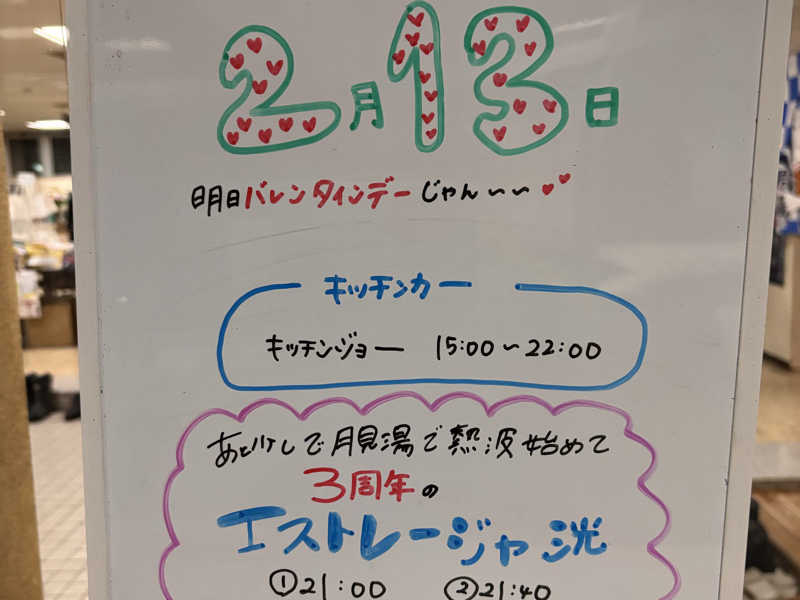 2月13日
明日バレンタインデーじゃん〜〜
キッチンカー
キッチンジョー 15:00〜22:00
あと少しで月見湯で熱波始めて
3周年の
エストレージャ洸
①21:00 ②21:40